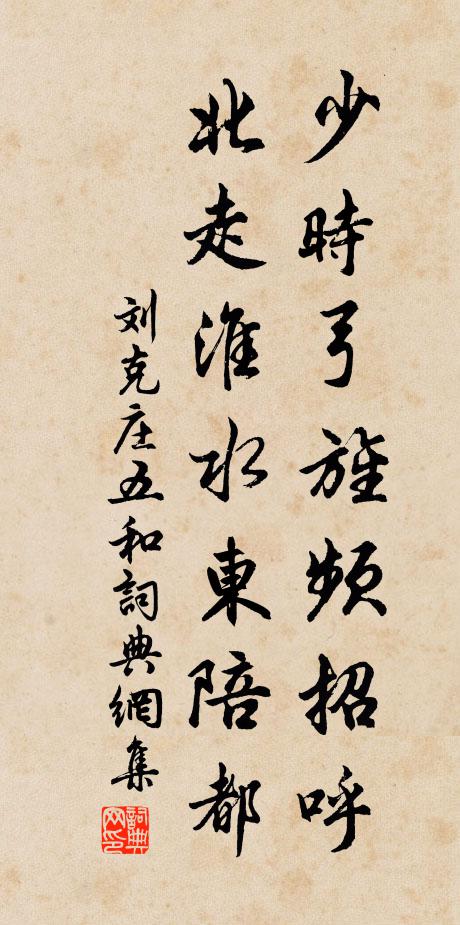 少時弓旌頻招呼
北走淮水東陪都
刘克庄五和詞典網集
詞典網印